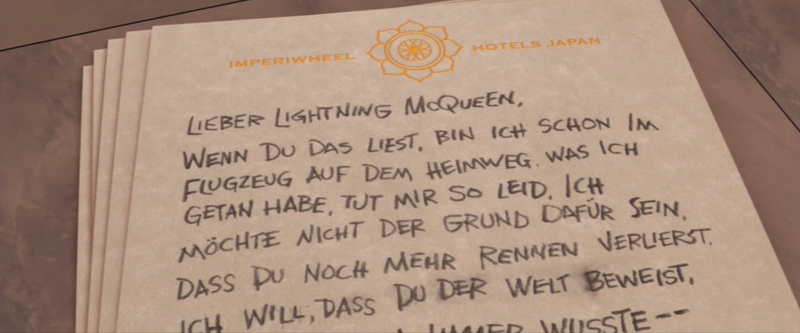 IMPERIWHEEL HOTELS JAPAN
LIEBER LIGHTNING MCQUEEN,
WENN DU DAS LIEST, BIN ICH SCHON IM
FLUGZEUG AUF DEM HEIMWEG. WAS ICH
GETAN HABE, TUT MIR SO LEID. ICH
MÖCHTE NICHT DER GRUND DAFÜR SEIN,
DASS DU NOCH MEHR RENNEN VERLIERST.
ICH WILL, DASS DU DER WELT BEWEIST,
IMMER WUSSTE--